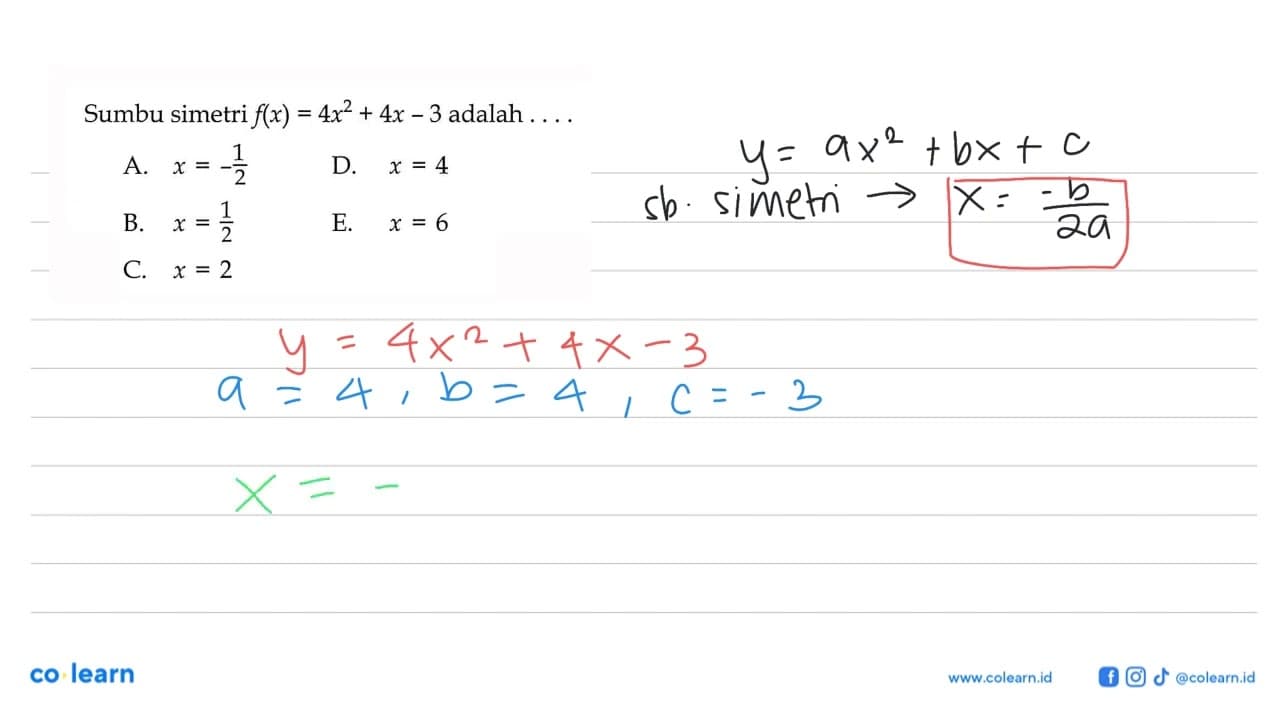 Sumbu simetri f(x) = 4x² + 4x – 3 adalah . . . .
A. x = -1/2 D. x = 4
B. x = 1/2 E. x = 6
C. x = 2
y = ax² + bx + c
sb. simetri → x = -b/2a
y = 4x² + 4x - 3
a = 4 , b = 4 , c = - 3
x = -
co learn
www.colearn.id @colearn.id